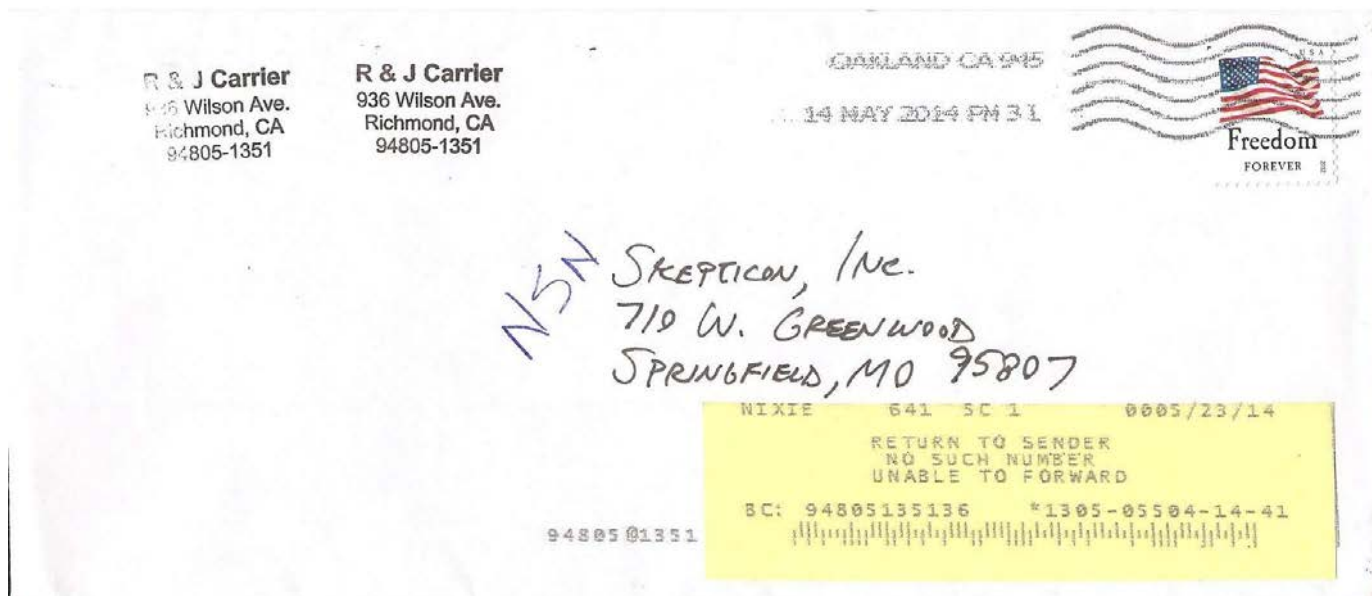 R & J Carrier
936 Wilson Ave.
Richmond, CA
94805-1351
R & J Carrier
936 Wilson Ave.
Richmond, CA
94805-1351
OAKLAND CA 945
14 MAY 2014 PM 3 L
USA
Freedom
FOREVER
NSN
SKEPTICON, INC.
710 W. GREENWOOD
SPRINGFIELD, MO 95807
NIXIE 641 5C 1 0005/23/14
RETURN TO SENDER
NO SUCH NUMBER
UNABLE TO FORWARD
BC: 94805135136 *1305-05504-14-41
94805@1351